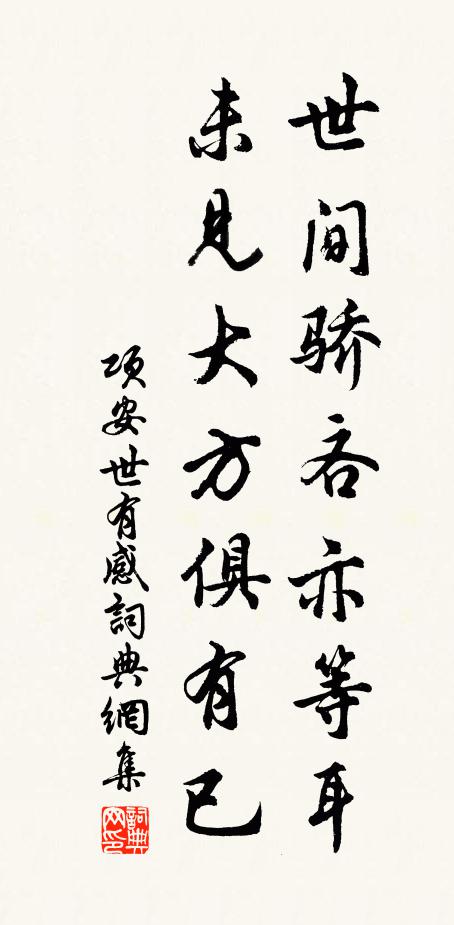 世间骄吝亦等耳
未见大方俱有已
项安世有感詞典網集
詞典网印